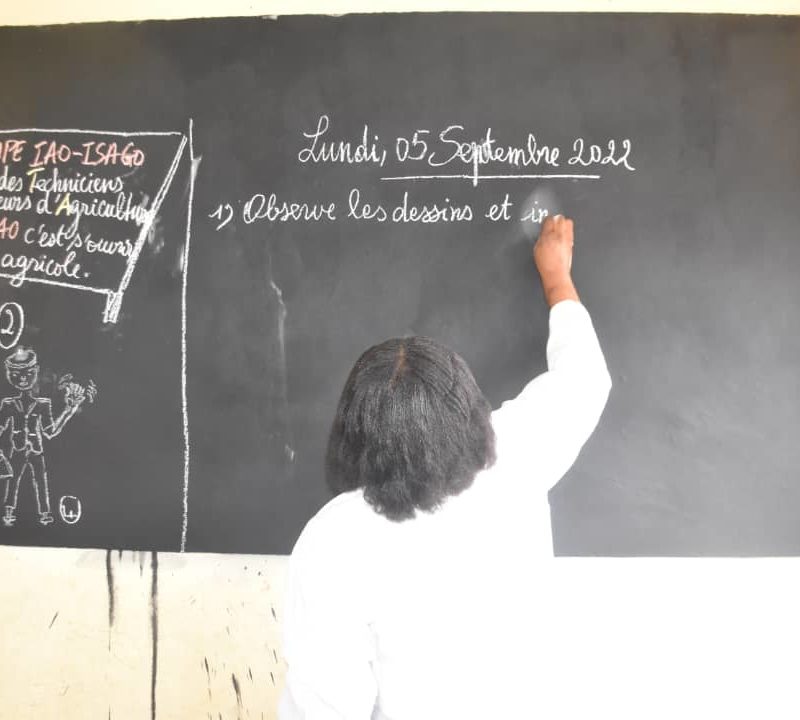 IAO-ISAGO
des Techniciens
d'Agriculture
c'est s'ouvrir
agricole.
2
Lundi, 05 Septembre 2022
1) Observe les dessins et in